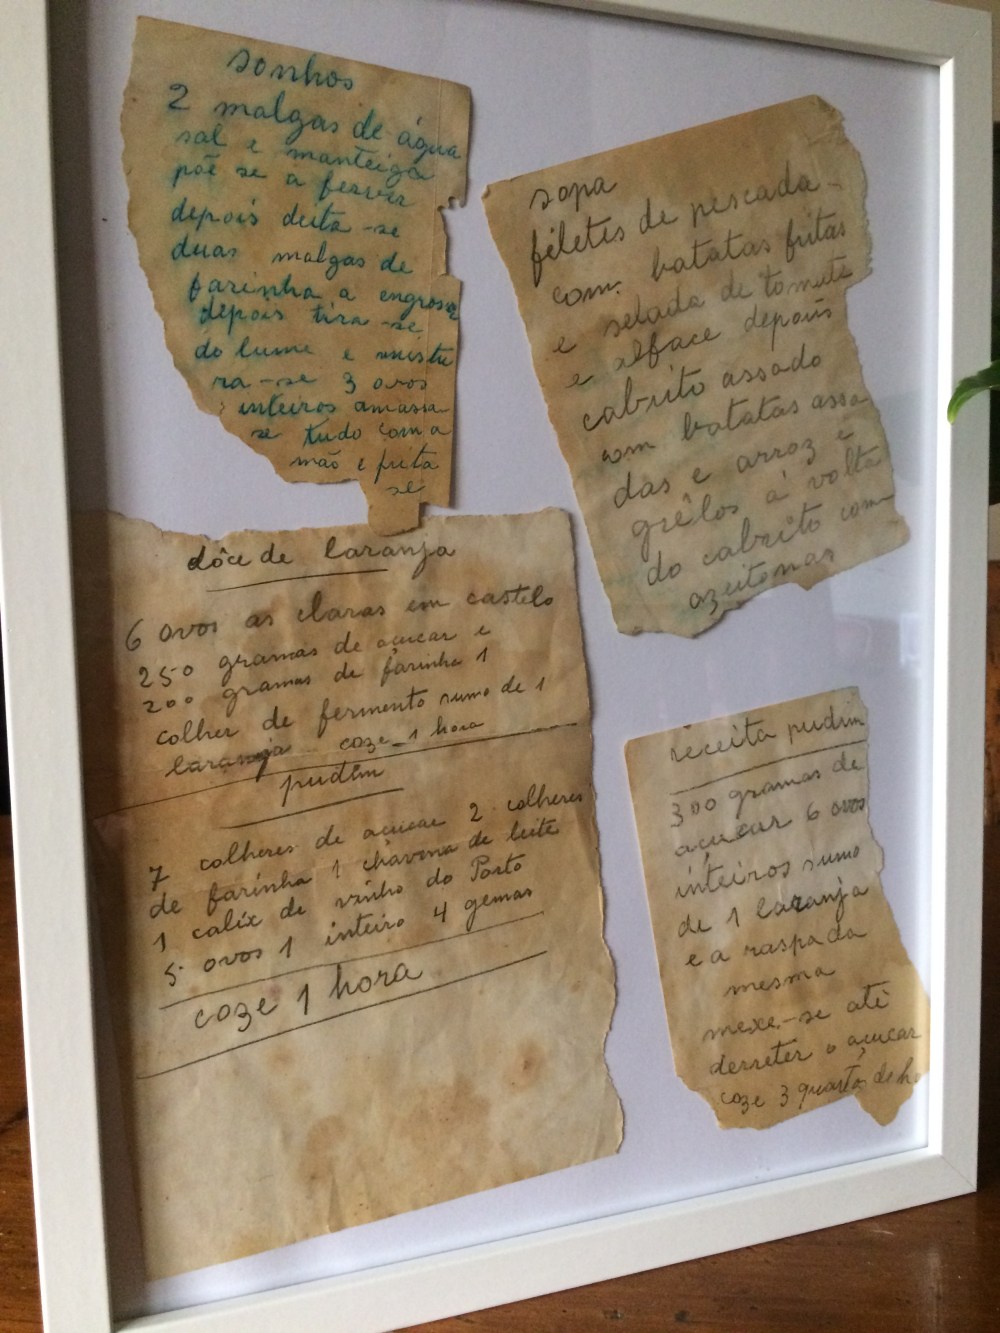 sonhos
2 malgas de água
sal e manteiga
põe se a ferver
depois deita-se
duas malgas de
farinha a engrosar
depois tira-se
do lume e mistu
ra-se 3 ovos
inteiros amassa
se tudo com a
mão e frita
se
sopa
filetes de pescada
com batatas fritas
e selada de tomate
e alface depois
cabrito assado
com batatas assa
das e arroz e
grêlos á volta
do cabrito com
azeitonas
dôce de laranja
6 ovos as claras em castelo
250 gramas de açucar e
200 gramas de farinha 1
colher de fermento sumo de 1
laranja coze 1 hora
pudim
7 colheres de açucar 2 colheres
de farinha 1 chávena de leite
1 calix de vinho do Porto
5 ovos 1 inteiro 4 gemas
coze 1 hora
receita pudim
300 gramas de
açucar 6 ovos
inteiros sumo
de 1 laranja
e a raspa da
mesma
mexe-se até
derreter o açucar
coze 3 quartos de h